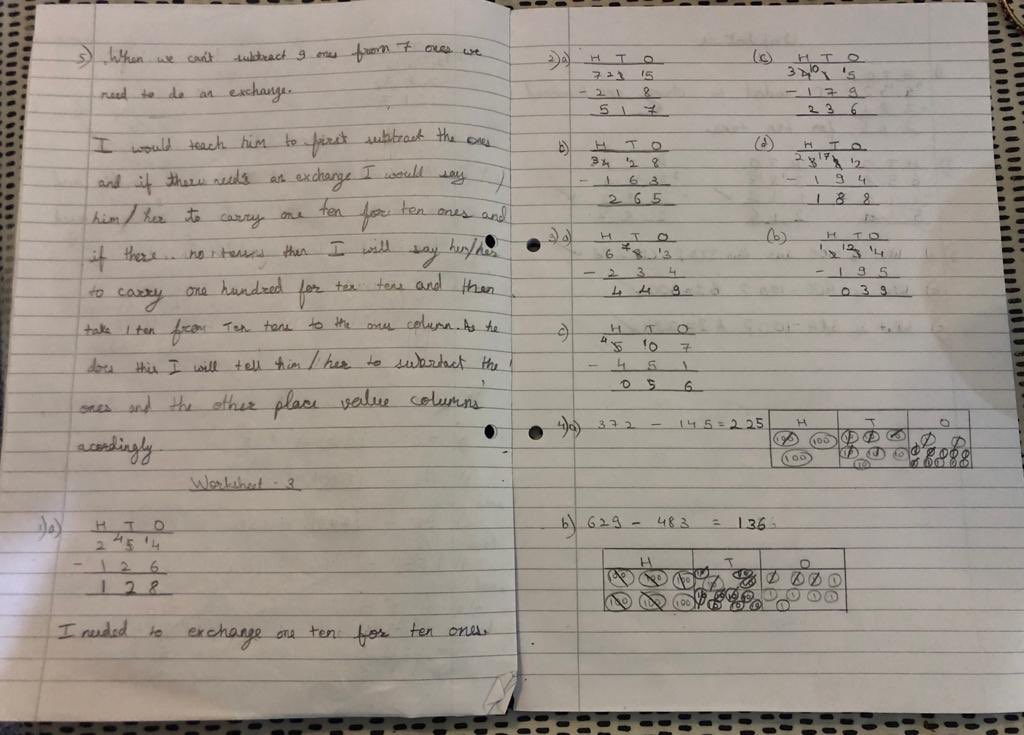 5) When we can't subtract 9 ones from 7 ones we
need to do an exchange.
I would teach him to first subtract the ones
and if there needs an exchange I would say
him/her to carry one ten for ten ones and
if there .. no tens, then I will say him/her
to carry one hundred for ten tens and then
take 1 ten from Ten tens to the ones column. As he
does this I will tell him/her to subartact the
ones and the other place value columns
acordingly.
Worksheet - 3
1)a)
H T O
2 4 5 14
- 1 2 6
1 2 8
I needed to exchange one ten for ten ones.
2)a) H T O
7 2 3 15
- 2 1 8
5 1 7
b) H T O
3 4 12 8
- 1 6 3
2 6 5
(c) H T O
3 4 10 1 15
- 1 7 9
2 3 6
(d) H T O
2 3 17 8 12
- 1 9 4
1 8 8
3)a) H T O
6 7 8 13
- 2 3 4
4 4 9
(b) H T O
1 2 12 3 14
- 1 9 5
0 3 9
c) H T O
4 5 10 7
- 4 5 1
0 5 6
4)a) 372 - 145 = 225
H T O
100 100
100
10
b) 629 - 483 = 136
H T O
100 100 100
100 100 100
1 1 1 1
1